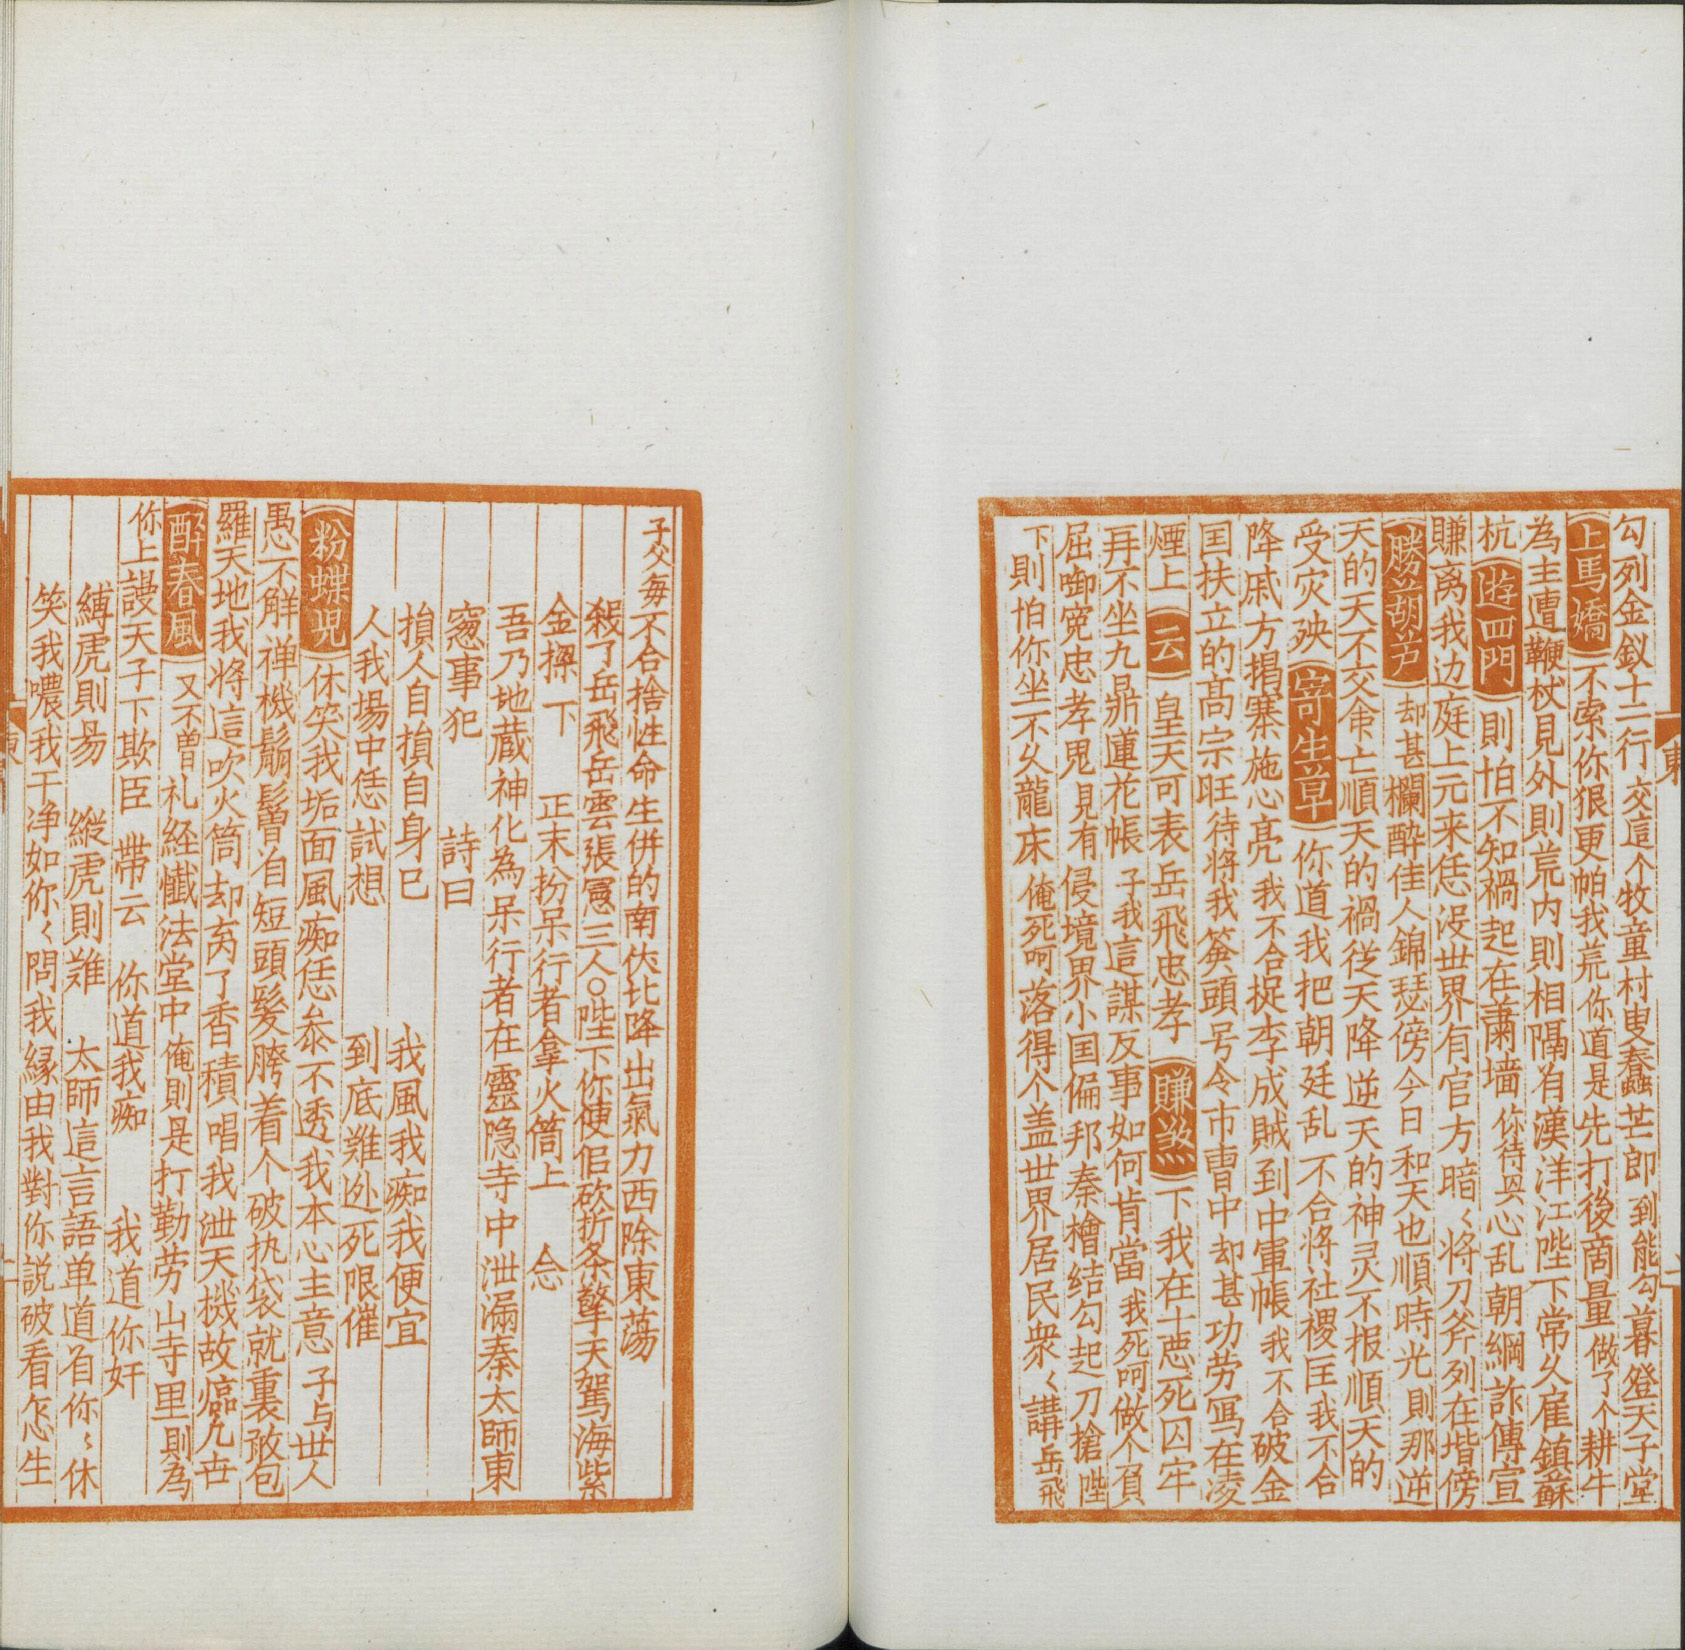 勾列金釵十二行交這个牧童村叟蠢芒郎到能勾暮登天子堂
上馬嬌不索你狠更怕我荒你道是先打後商量做了个耕牛
為主遭鞭杖見外則荒内則相隔有漢洋江陛下常久雇鎮蘇
杭遊四門則怕不知禍起在蕭墻你待奐心乱朝綱詐傳宣
賺离我边庭上元来恁没世界有官方暗〻将刀斧列在堦傍
勝葫芦却甚欄醉佳人錦瑟傍今日和天也順時光則那逆
天的天不交命亡順天的禍從天降逆天的神灵不报順天的
受灾殃寄生草你道我把朝廷乱不合将社稷匡我不合
降戚方揭寨施心亮我不合捉李成賊到中軍帳我不合破金
国扶立的高宗旺待将我筭頭号令市曹中却甚功劳寫在凌
煙上云皇天可表岳飛忠孝賺煞下我在十悪死囚牢
再不坐九鼎蓮花帳子我這謀反事如何肯當我死呵做个負
屈啣寃忠孝鬼見有侵境界小国偏邦秦檜結勾起刀搶陛
下則怕你坐不久龍床俺死呵落得个盖世界居民衆〻講岳飛
子父每不合捨性命生併的南伏北降出氣力西除東蕩
殺了岳飛岳雲張憲三人○陛下你便佀砍折条擎天駕海紫
金樑下 正末扮呆行者拿火筒上 念
吾乃地蔵神化為呆行者在靈隐寺中泄漏秦太師東
窓事犯 詩曰
損人自損自身已 我風我痴我便宜
人我場中恁試想 到底難迯死限催
粉蝶兒休笑我垢面風痴恁叅不透我本心主意子与世人
愚不觧禅機鬅鬙着短頭髮胯着个破执袋就裏敢包
羅天地我将這吹火筒却离了香積唱我泄天機故臨凢世
醉春風又不曽礼経懴法堂中俺則是打勤劳山寺里則為
你上謾天子下欺臣 帶云 你道我痴 我道你奸
縛虎則昜 縱虎則難 太師這言語单道着你〻休
笑我噥我干净如你〻問我縁由我對你説破看怎生